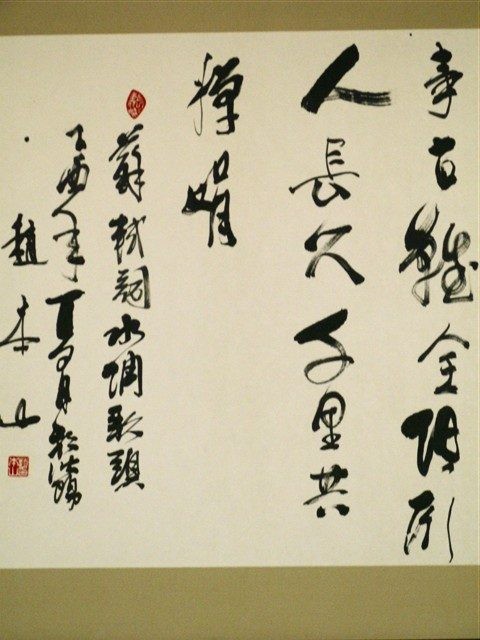 事古難全但願
人長久千里共
嬋娟
蘇軾詞水調歌頭
乙酉年丁月於瀋陽
趙本山